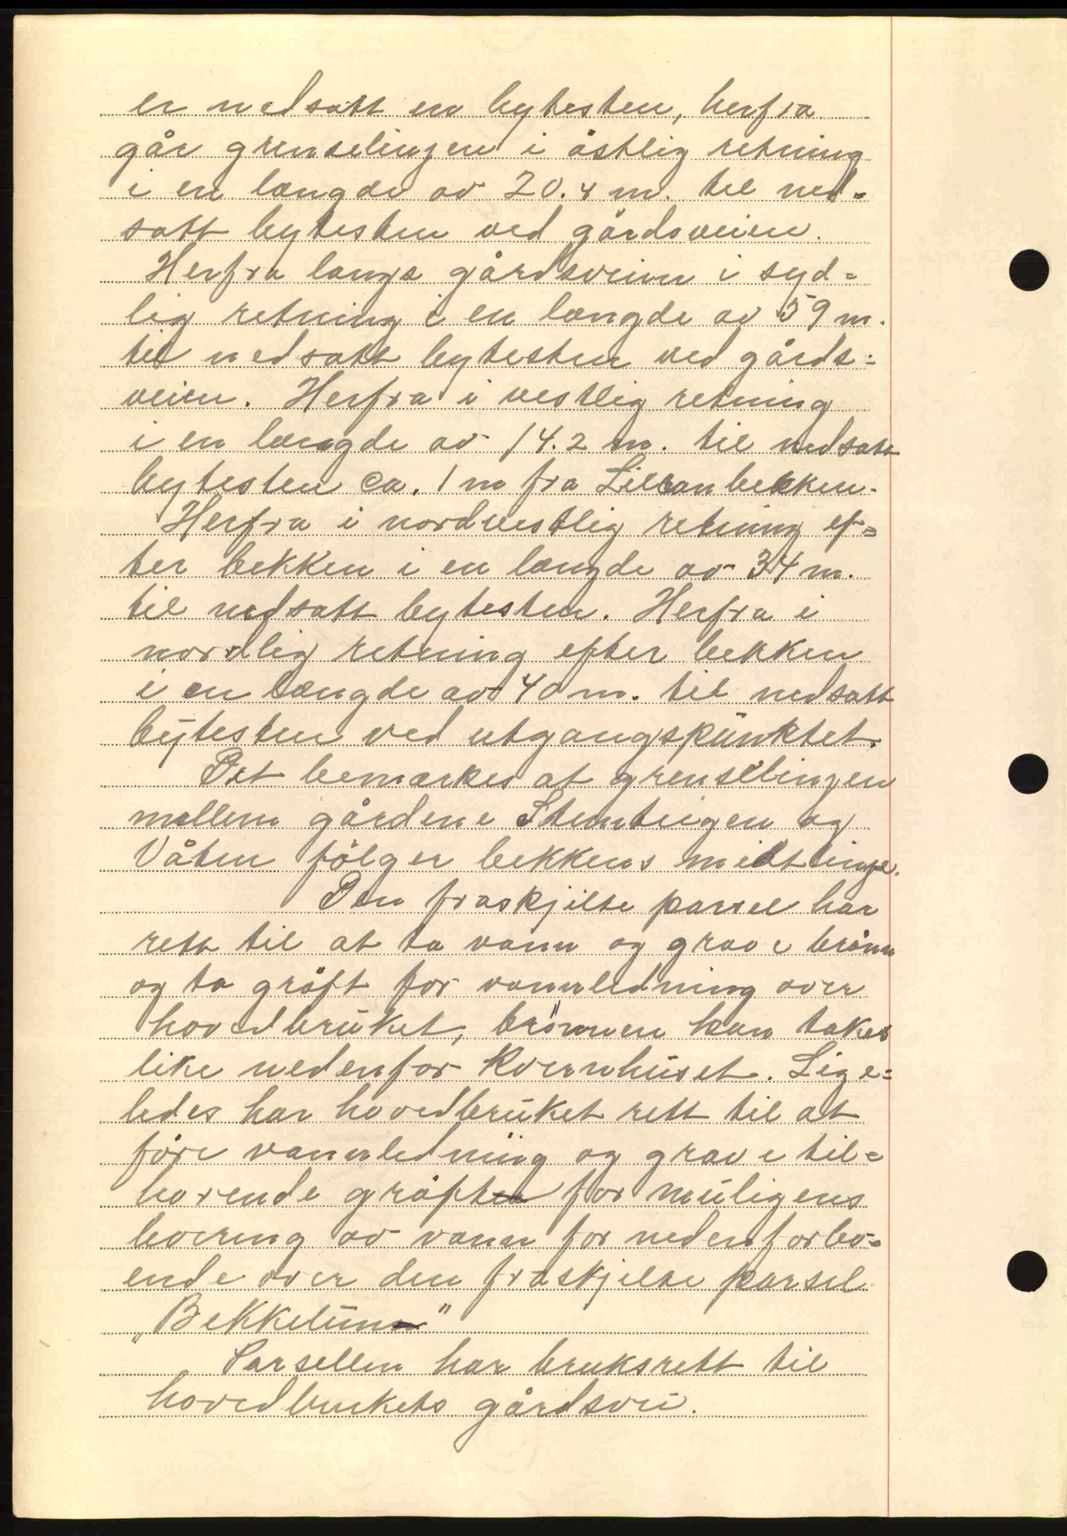 er nedsatt en bytesten, herfra
går grenselinjen i östlig retning
i en længde av 20.4 m. til ned=
satt bytesten ved gårdsveien.
Herfra langs gårdsveien i syd=
lig retning i en længde av 59 m.
til nedsatt bytesten ved gårds=
veien. Herfra i vestlig retning
i en længde av 14.2 m. til nedsatt
bytesten ca. 1 m fra bekken.
Herfra i nordvestlig retning ef=
ter bekken i en længde av 34 m.
til nedsatt bytesten. Herfra i
nordlig retning efter bekken
i en længde av 40 m. til nedsatt
bytesten ved utgangspunktet.
Det bemærkes at grenselinjen
mellem gårdene og
Våten fölger bekkens midtlinje.
Den fraskjilte parsel har
rett til at ta vann og grave brönn
og ta gröft for vannledning over
hovedbruket, brönnen kan takes
like nedenfor Kvernhuset. Lige=
ledes har hovedbruket rett til at
före vannledning og grave til=
hörende gröfter for muligens
boering av vann for nedenforbo=
ende over den fraskjelte parsel
„Bekkelund"
Parsellen har bruksrett til
hovedbrukets gårdsvei.